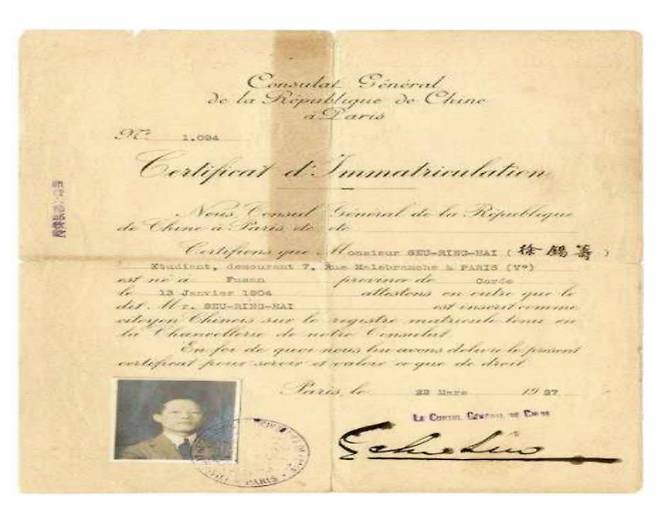 Consulat Général
de la République de Chine
à Paris
Nº 1.094
Certificat d'Immatriculation
Nous, Consul Général de la République
de Chine à Paris, etc. etc.
Certifions que Monsieur SEU-RING-HAI (徐錫籌)
Etudiant, demeurant 7, Rue Malebranche à PARIS (Vº)
est né à Fusan province de Corée
le 13 Janvier 1904 attestons en outre que le
dit Mr. SEU-RING-HAI est inscrit comme
citoyen Chinois sur le registre matricule tenu en
la Chancellerie de notre Consulat.
En foi de quoi nous lui avons délivré le présent
certificat pour servir et valoir ce que de droit.
Paris, le 22 Mars 1937
LE CONSUL GÉNÉRAL DE CHINE
PARIS